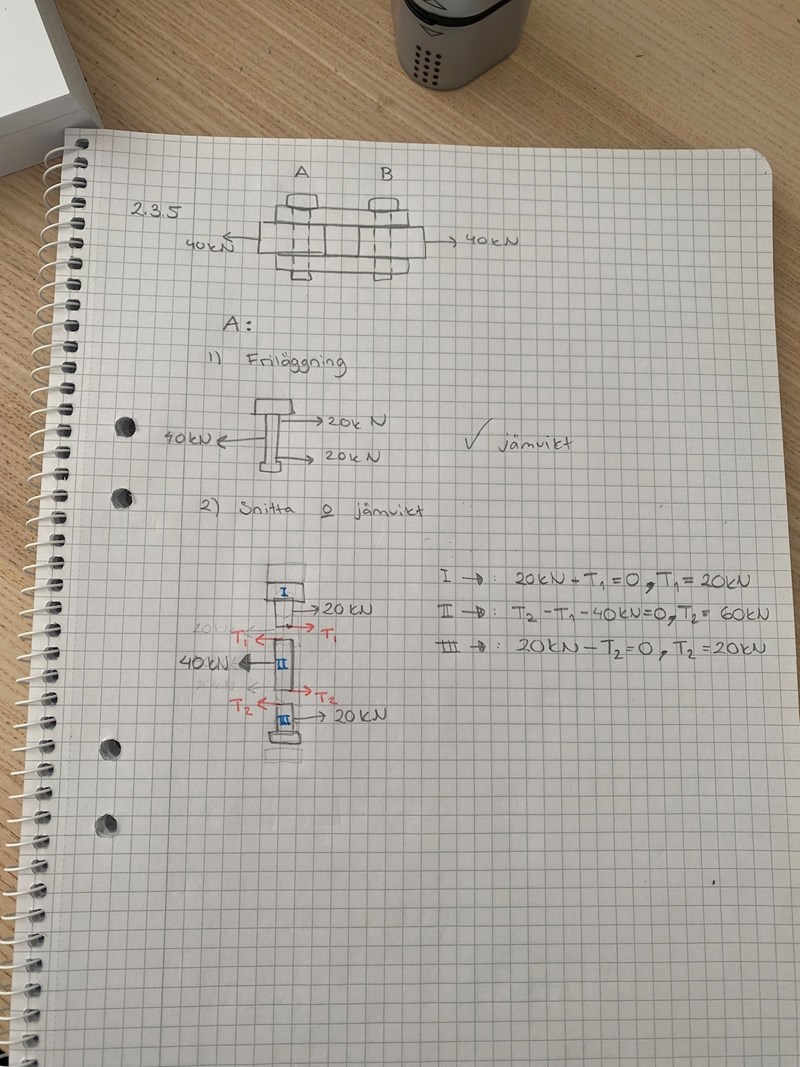 A B
2.3.5
40kN 40kN
A:
1) Friläggning
20kN
40kN
20kN
✓ jämvikt
2) Snitta o jämvikt
I
20kN
20kN
T₁ T₁
40kN II
T₂ T₂
III 20kN
I →: 20kN + T₁ = 0, T₁ = 20kN
II →: T₂ - T₁ - 40kN = 0, T₂ = 60kN
III →: 20kN - T₂ = 0, T₂ = 20kN